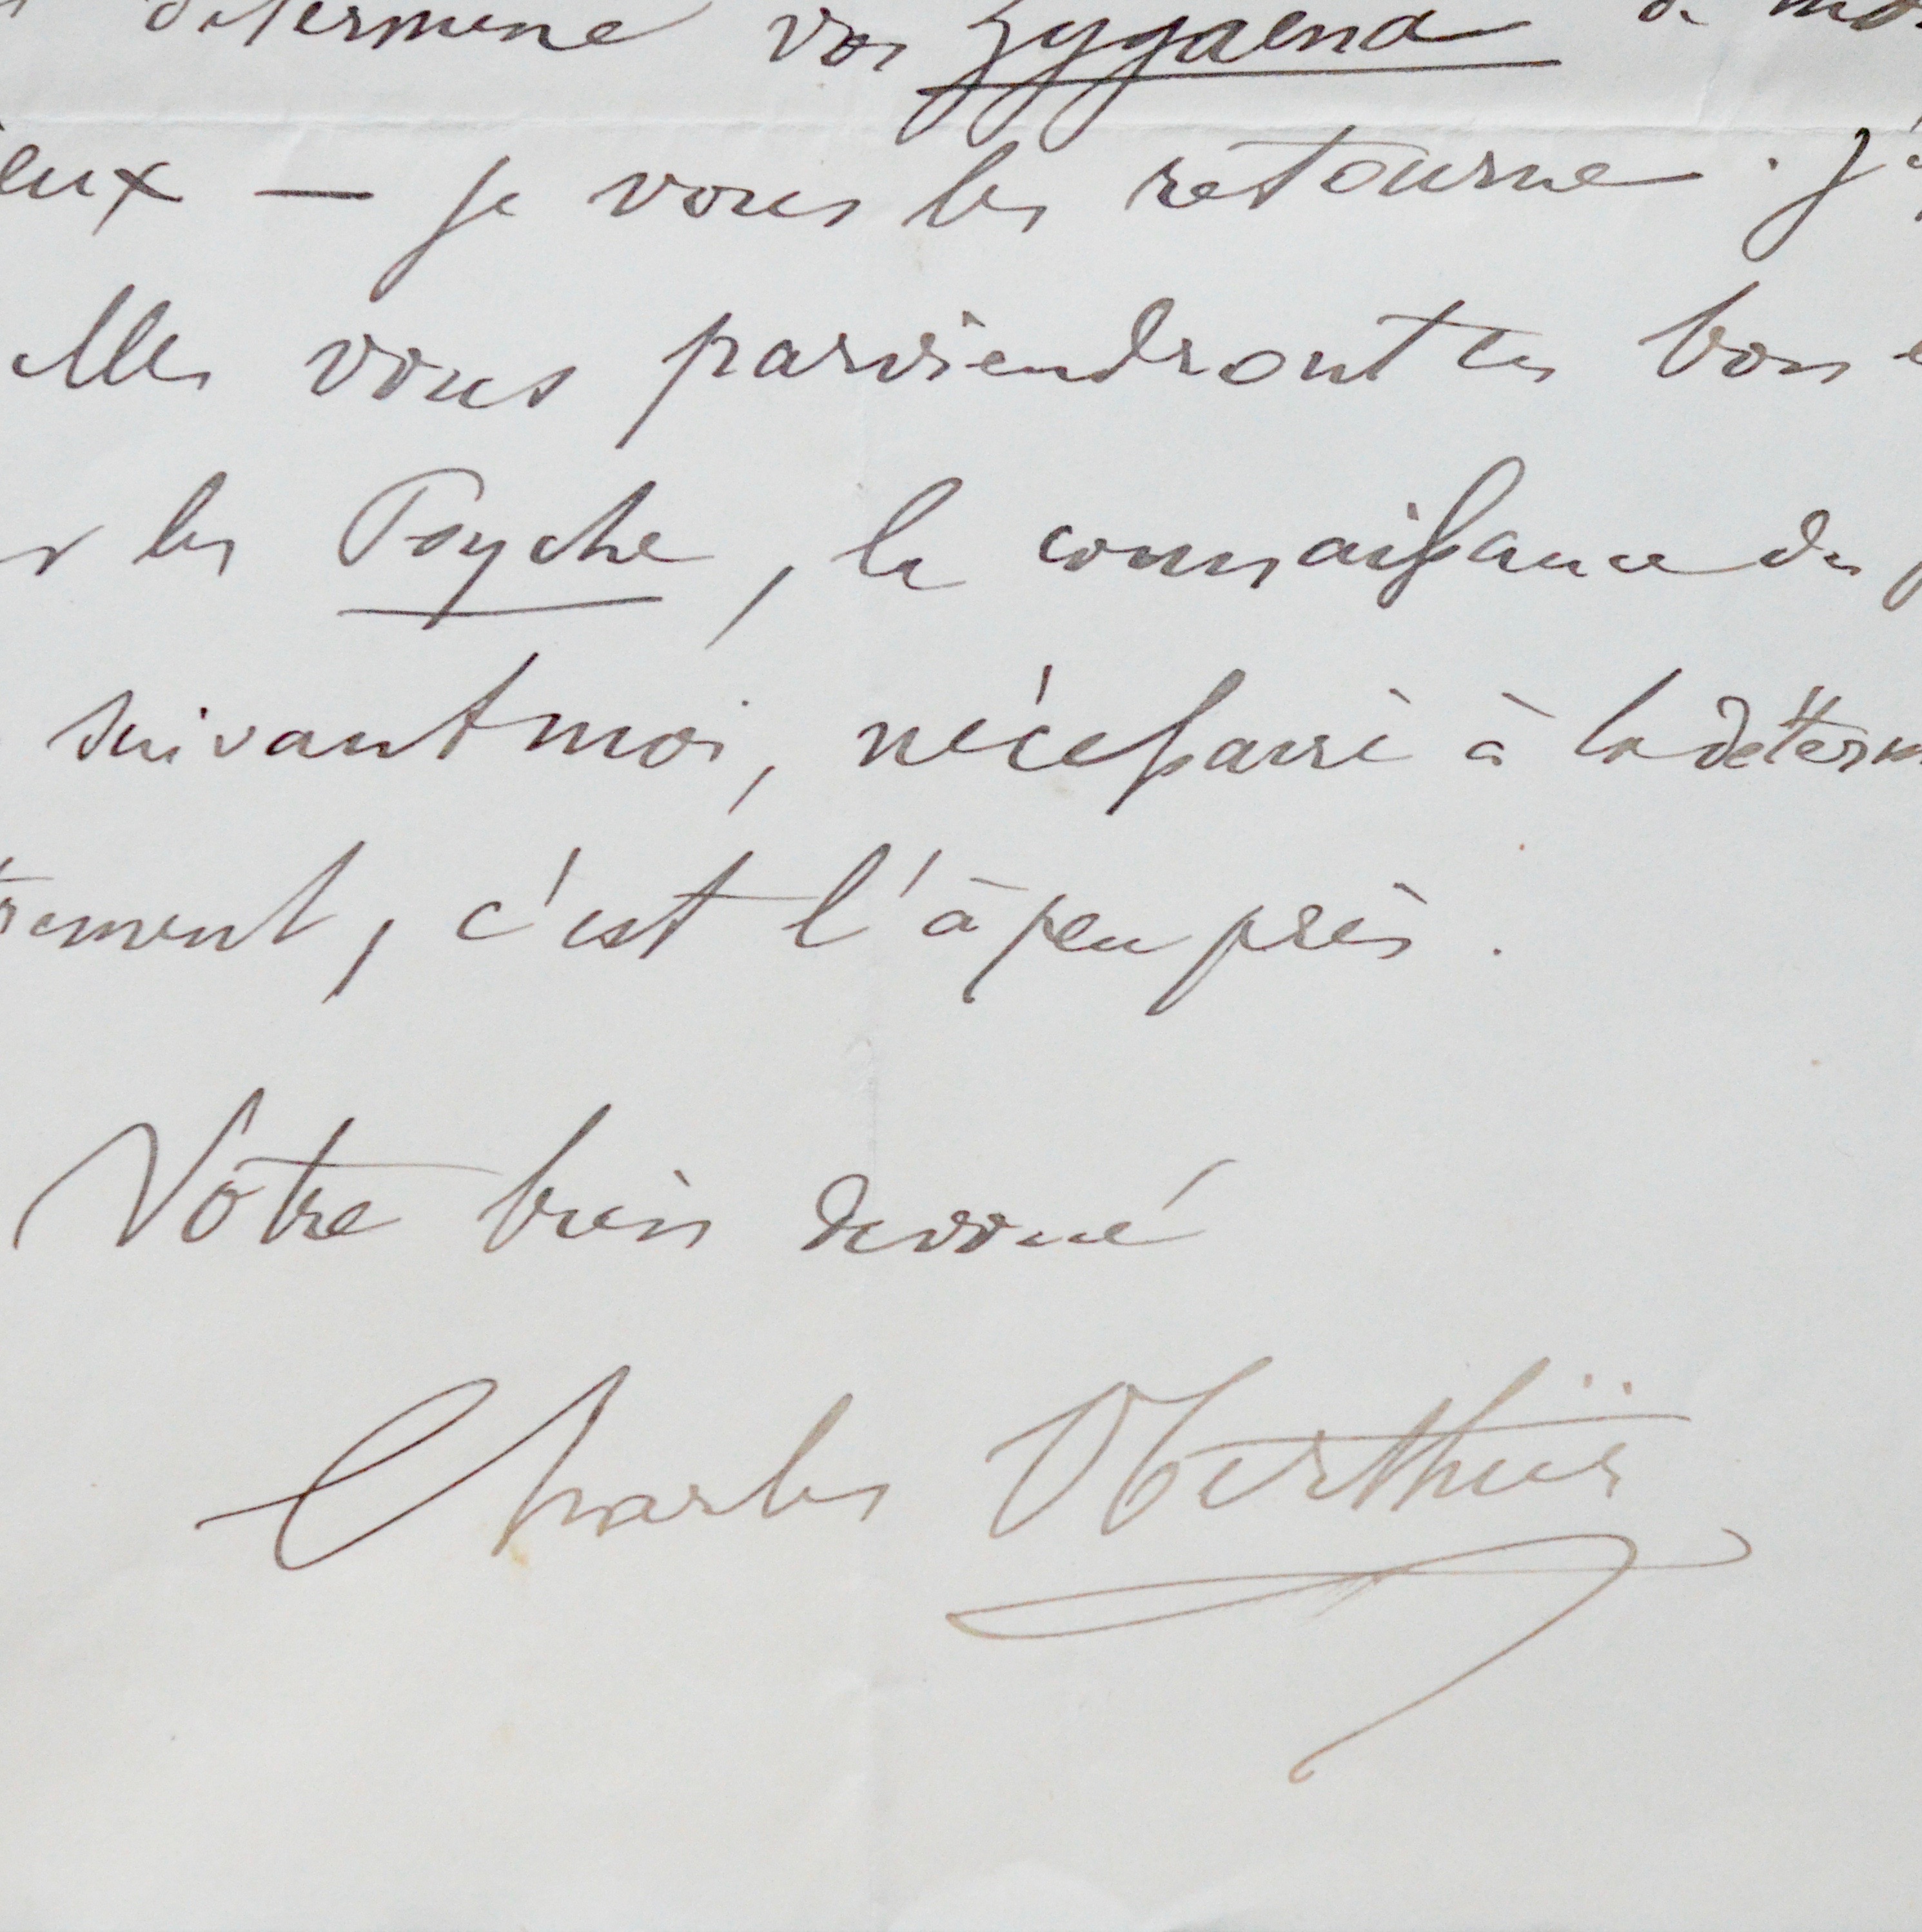 déterminé vos Zygaena de mo
eux — je vous les retourne. J'
elles vous parviendront en bon e
r les Psyche, la connaissance des
suivant moi, nécessaire à la déterm
rement, c'est l'à peu près.
Votre bien dévoué
Charles Oberthür